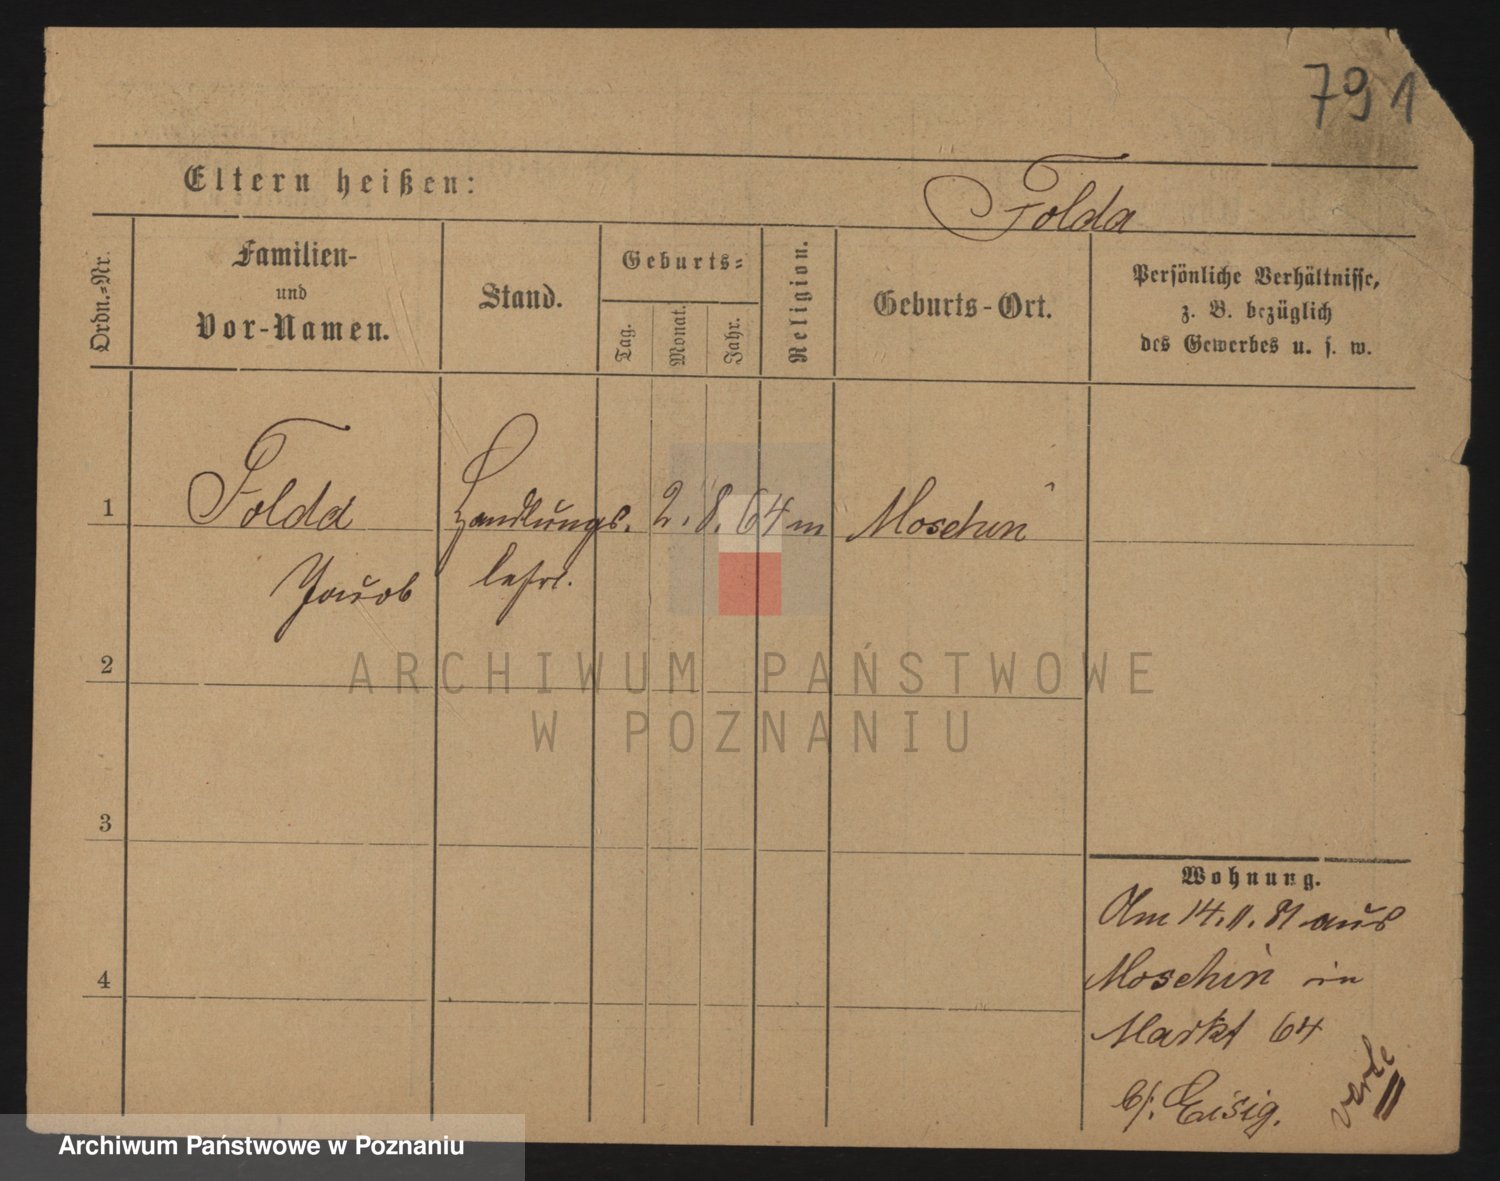 791
Eltern heißen:
Folda
Ordn.=Nr.
Familien-
und
Vor-Namen.
Stand.
Geburts=
Tag.
Monat.
Jahr.
Religion.
Geburts-Ort.
Persönliche Verhältnisse,
z. B. bezüglich
des Gewerbes u. s. w.
1
Folda
Handlungs.
2. 8. 64 m
Moschin
Jacob
lehrl.
2
ARCHIWUM PAŃSTWOWE
W POZNANIU
3
Wohnung.
Am 14.11.81 aus
4
Moschin in
Markt 64
b/. Eisig.
Archiwum Państwowe w Poznaniu